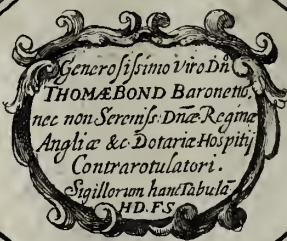 Generosissimo Viro Dn̄
THOMÆ BOND Baronetto,
nec non Sereniss: Dnǣ Reginæ
Angliæ &c. Dotariæ Hospitij
Contrarotulatori.
Sigillorum hanc Tabulā
HD.FS